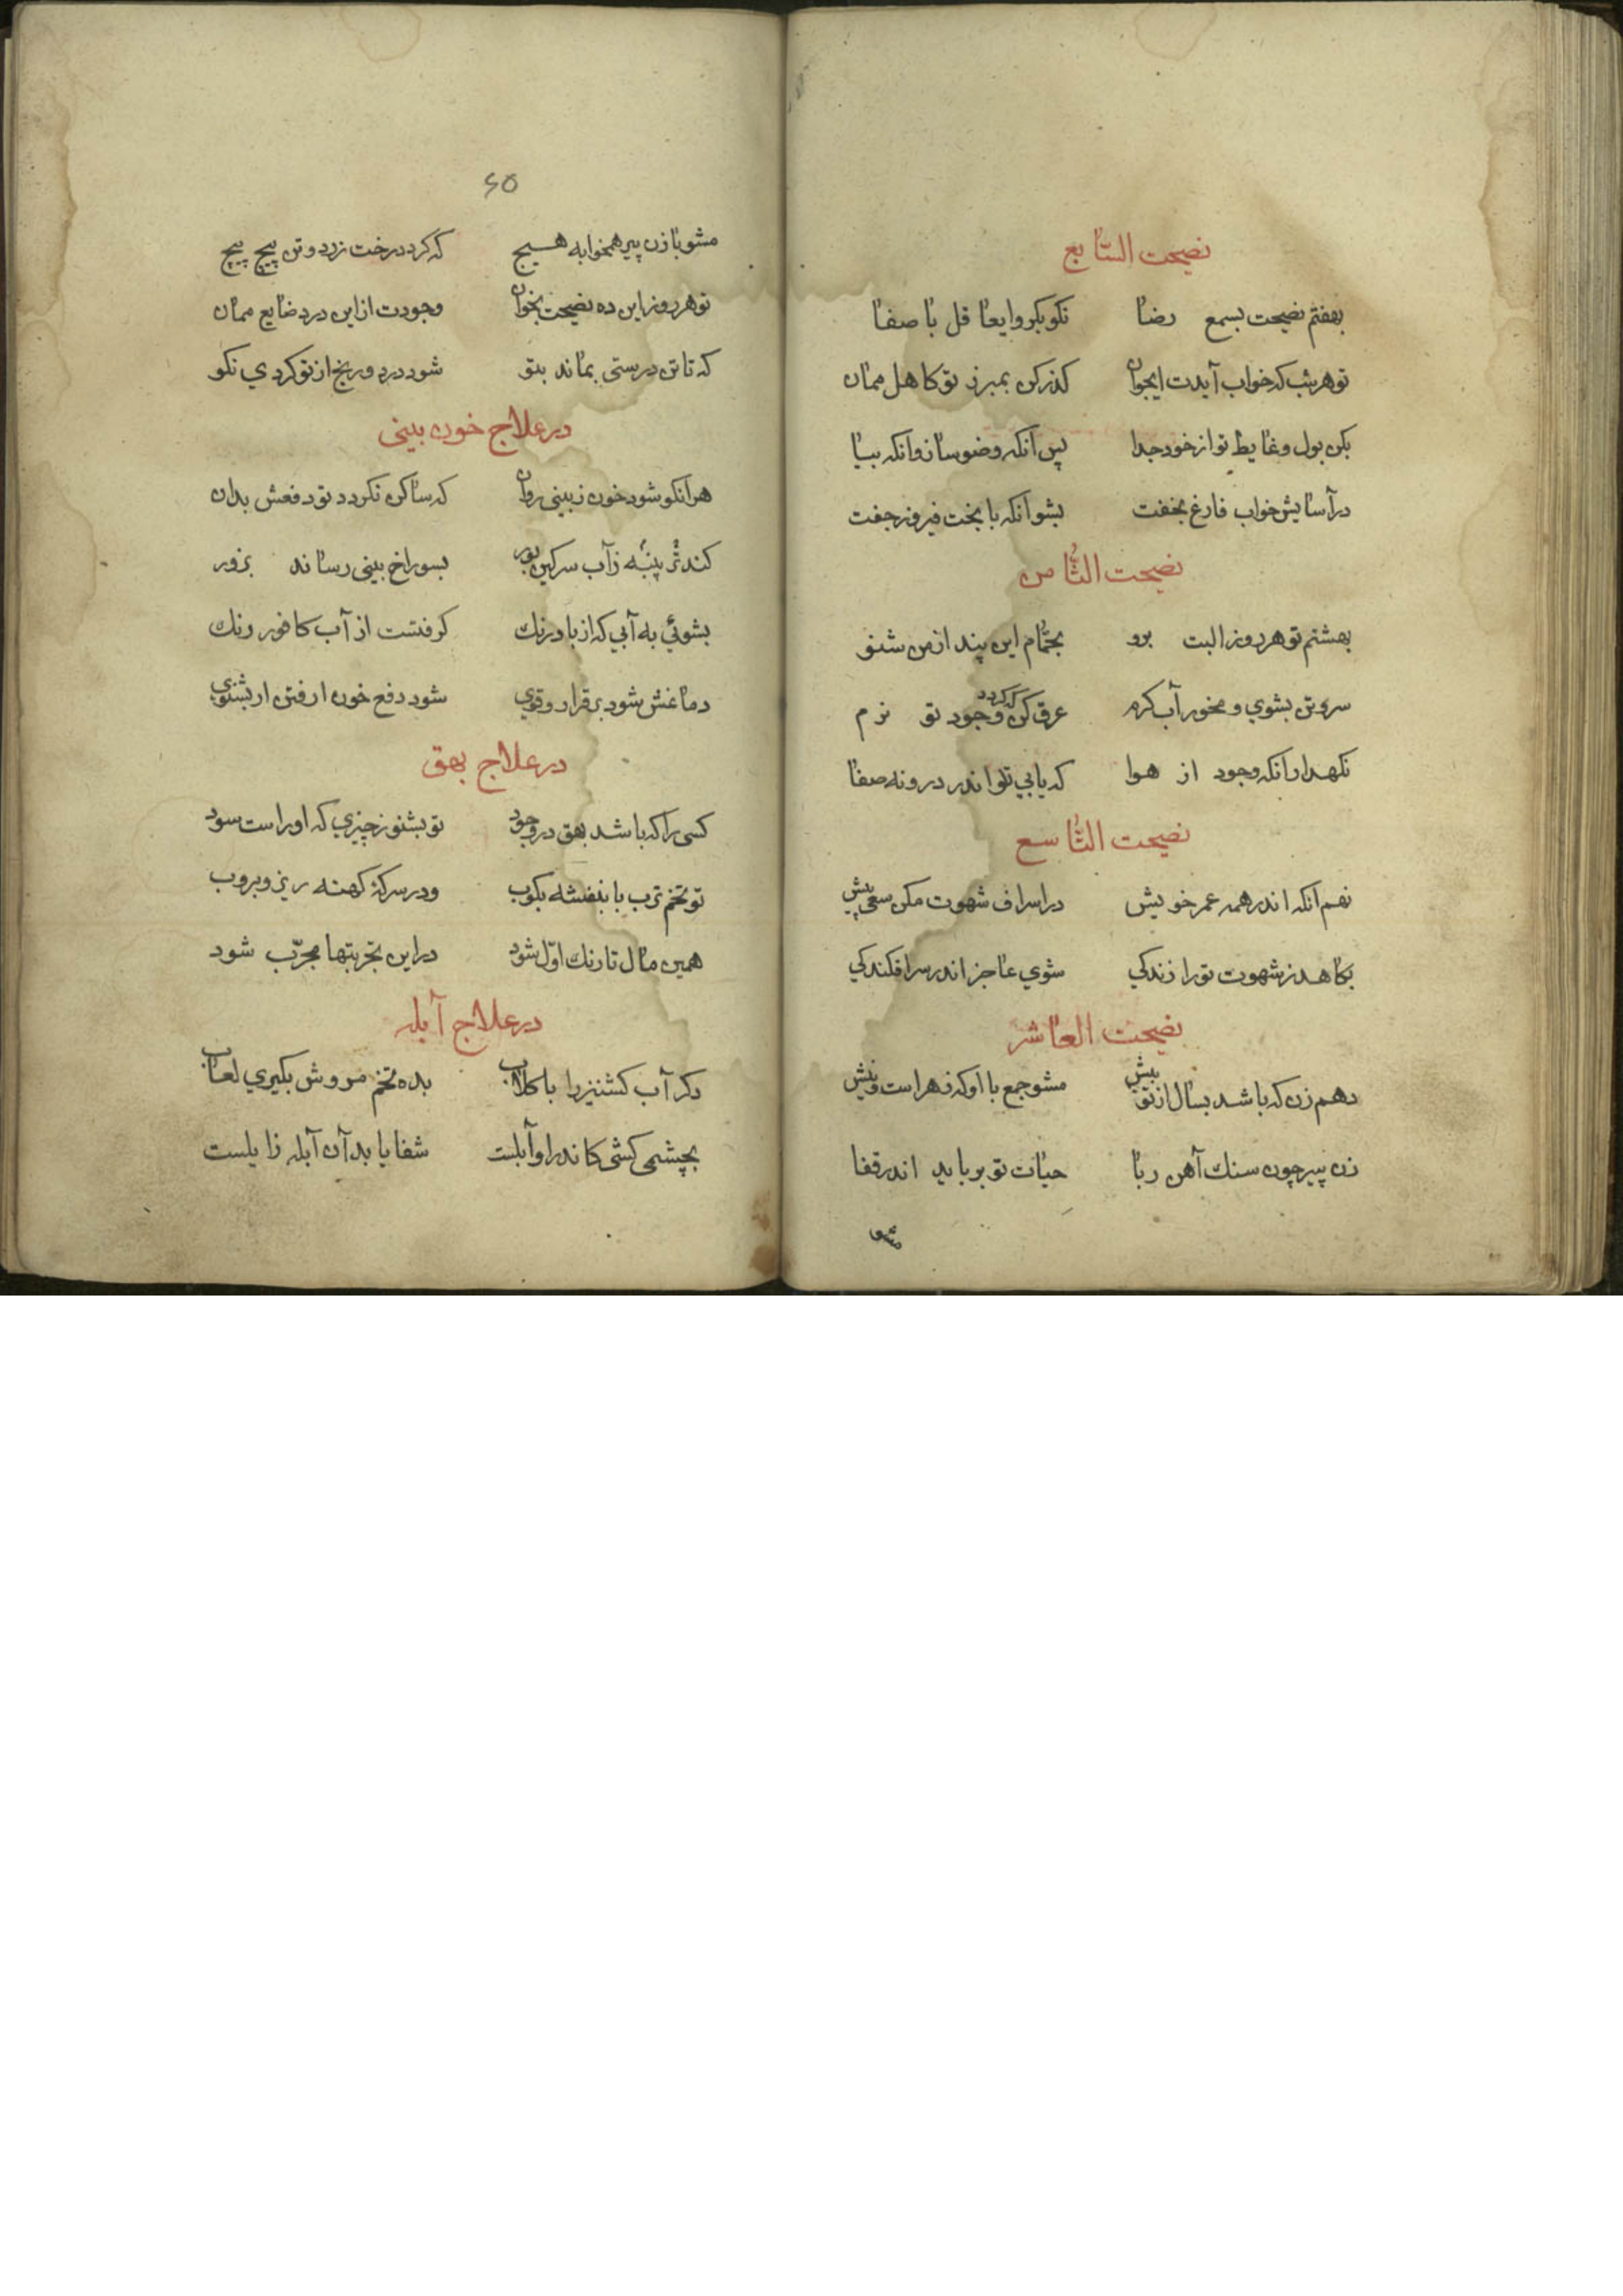 نصیحت السّابع
بهفتم نصیحت بسمع رضا نکو بکرو ایعاقل با صفا
تو هر شب که خواب آیدت ایجوان کذر کن بمبرز تو کاهل ممان
بکن بول و غایط تو از خود جدا پس آنکه وضو ساز وانکه بیا
در آسایش خواب فارغ بخفت بشو آنکه با بخت فیروز جفت
نصیحت الثّامن
بهشتم تو هر روز البت برو بحمّام این پند از من شنو
سر و تن بشوی و مخور آب کرم عرق کن که کردد وجود تو نرم
نکهدار آنکه وجود از هوا که یابی تو اندر درونه صفا
نصیحت التّاسع
نهم آنکه اندر همه عمر خویش در اسراف شهوت مکن سعی بیش
بکاهد ز شهوت تو را زندکی شوی عاجز اندر سرافکندکی
نصیحت العاشر
دهم زن که باشد بسال از تو بیش مشو جمع با او که زهر است و نیش
زن پیر چون سنك آهن ربا حیات تو برباید اندر قفا
مشو
۶۵
مشو با زن پیر همخوابه هیچ که کردد رخت زرد و تن پیچ پیچ
تو هر روز این ده نصیحت بخوان وجودت از این درد ضایع ممان
که تا تن درستی بماند بتو شود درد و رنج از تو کردی نکو
در علاج خون بینی
هر آنکو شود خون ز بینی روان که ساکن نکردد تو دفعش بدان
کند تر پنبه ز آب سرکین بور بسوراخ بینی رساند بزور
بشوئی به آبی که از بادرنك کرفتست از آب کافور رنك
دماغش شود برقرار و قوی شود دفع خون ار فتن ار بشنوی
در علاج بهق
کسی را که باشد بهق در وجود تو بشنو ز چیزی که او راست سود
تو تخم ترب با بنفشه بکوب و در سرکۀ کهنه ریز و بروب
همین مال تا رنك اوّل شود در این تجربتها مجرّب شود
در علاج آبله
دکر آب کشنیز را با کلاب بده تخم مروش بکیری لعاب
بچشمی کشی کاندر او آبلست شفا یابد آن آبله زایلست